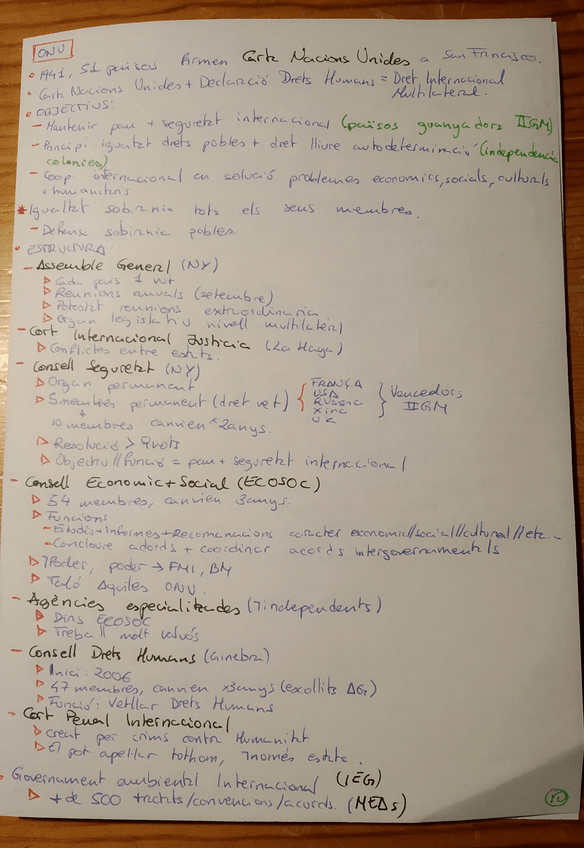 ONU
• 1941, 51 països firmen Carta Nacions Unides a San Francisco.
• Carta Nacions Unides + Declaració Drets Humans = Dret Internacional
Multilateral.
• OBJECTIUS:
- Mantenir pau + seguretat internacional (països guanyadors IIGM)
- Principi igualtat drets pobles + dret lliure autodeterminació (independència
colonies)
- Coop. internacional en solució problemes economics, socials, culturals
o humanitaris
* Igualtat sobirania tots els seus membres.
- Defensa sobirania pobles.
• ESTRUCTURA:
- Assemblea General (NY)
▷ Cada país 1 vot
▷ Reunions anuals (setembre)
▷ Potestat reunions extraordinaria
▷ Organ legislatiu nivell multilateral
- Cort Internacional Justicia (La Haya)
▷ Conflictes entre estats.
- Consell Seguretat (NY)
▷ Organ permanent
▷ 5 membres permanent (dret vet) { FRANÇA USA RUSSIA XINA UK } Vencedors IIGM
+
10 membres canvien x 2 anys.
▷ Resolució > 9 vots
▷ Objectiu // Funció = pau + seguretat internacional
- Consell Economic + Social (ECOSOC)
▷ 54 membres, canvien 3 anys.
▷ Funcions
- Estudis + Informes + Recomanacions caracter economic//social//cultural//etc...
- Concloure acords + coordinar acords intergovernamentals
▷ 7 Poder, poder → FMI, BM
▷ Taló Aquiles ONU.
- Agències especialitzades (7 independents)
▷ Dins ECOSOC
▷ Treball molt valuós
- Consell Drets Humans (Ginebra)
▷ Inici: 2006
▷ 47 membres, canvien x 3 anys (escollits AG)
▷ Funció: Vetllar Drets Humans
- Cort Penal Internacional
▷ Creat per crims contra Humanitat
▷ El pot apel·lar tothom, 7 només estats.
• Governament ambiental Internacional (IEG)
▷ + de 500 tractats/convencions/acords. (MEAs)